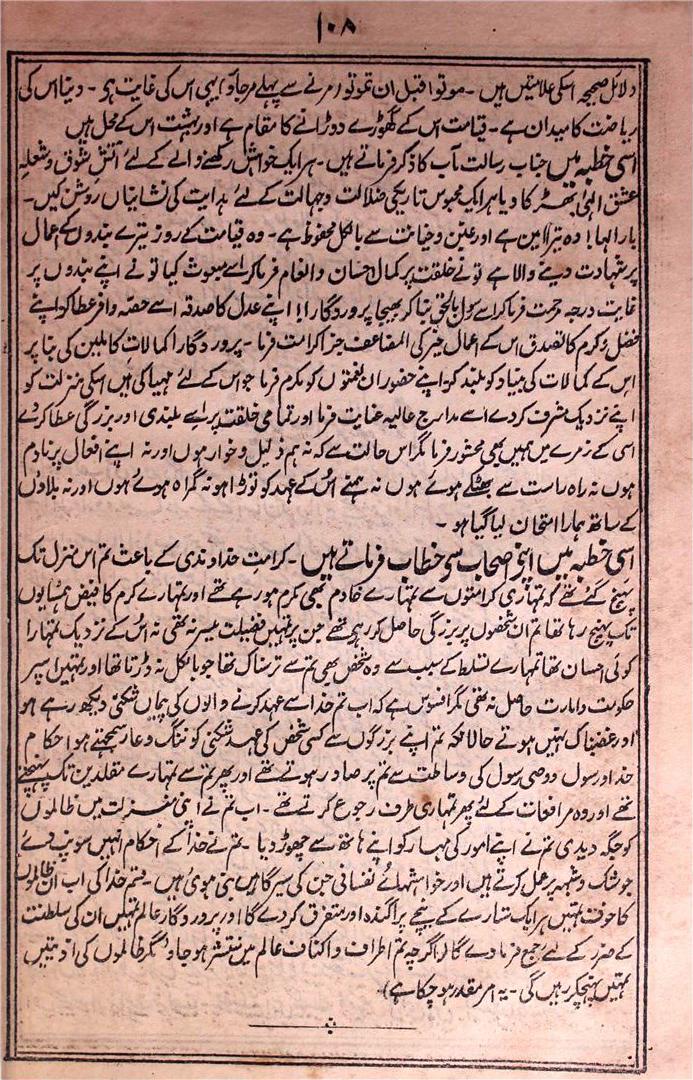 ۱۰۸
دلائل صحیحہ اسکی علامتیں ہیں ۔ موتوا قبل ان تموتوا (مرنے سے پہلے مرجاؤ) یہی اس کی غایت ہی ۔ دنیا اس کی
ریاضت کا میدان ہے ۔ قیامت اس کے گھوڑے دوڑانے کا مقام ہے اور بہشت اس کے محل ہیں
اسی خطبہ میں جناب رسالت مآب کا ذکر فرماتے ہیں ۔ ہر ایک خواہش رکھنے والے کے لئے آتش شوق و شعلہ
عشق الہٰی بھڑکا دیا ہر ایک محبوس تاریکی ضلالت و جہالت کے لئے ہدایت کی نشانیاں روشن کیں ۔
بارالہا! وہ تیرا امین ہے اور غبن و خیانت سے بالکل محفوظ ہے ۔ وہ قیامت کے روز تیرے بندوں کے اعمال
پر شہادت دینے والا ہے تو نے خلقت پر کمال احسان و انعام فرماکر اسے مبعوث کیا تو نے اپنے بندوں پر
غایت درجہ رحمت فرماکر اسے رسول بالحق بنا کر بھیجا پروردگارا!! اپنے عدل کا صدقہ اسے حصہ وافر عطا کر اپنے
فضل و کرم کا تصدق اس کے اعمال خیر کی المضاعف جزا کرامت فرما ۔ پروردگارا کمالات کاملین کی بنا پر
اس کے کمالات کی بنیاد کو بلند کر ۔ اپنے حضور ان نعمتوں کو مکرم فرما جو اس کے لئے مہیا کی ہیں اسکی منزلت کو
اپنے نزدیک مشرف کردے اسے مدارج عالیہ عنایت فرما اور تمامی خلقت پر اسے بلندی اور بزرگی عطا کردے
اسی کے زمرے میں ہمیں بھی محشور فرما مگر اس حالت سے کہ نہ ہم ذلیل و خوار ہوں اور نہ اپنے افعال پر نادم
ہوں نہ راہ راست سے بھٹکے ہوئے ہوں نہ ہمنے اُس کے عہد کو توڑا ہو نہ گمراہ ہوئے ہوں اور نہ بلاؤں
کے ساتھ ہمارا امتحان لیا گیا ہو ۔
اسی خطبہ میں اپنے اصحاب سی خطاب فرماتے ہیں ۔ کرامت خداوندی کے باعث تم اس منزل تک
پہنچ گئے تھے کہ تمہاری کرامتوں سے تمہارے خادم بھی مکرم ہو رہے تھے اور تمہارے کرم کا فیض ہمسایوں
تک پہنچ رہا تھا تم ان شخصوں پر بزرگی حاصل کر رہے تھے جن پر تمہیں فضیلت میسر نہ تھی نہ اُس کے نزدیک تمہارا
کوئی احسان تھا تمہارے تسلط کے سبب سے وہ شخص بھی تم سے ترسناک تھا جو بالکل نہ ڈرتا تھا اور تمہیں اسپر
حکومت و امارت حاصل نہ تھی مگر افسوس ہے کہ اب تم خدا سے عہد کرنے والوں کی پیماں شکنی دیکھ رہے ہو
اور غضبناک نہیں ہوتے حالانکہ تم اپنے بزرگوں سے کسی شخص کی عہد شکنی کو ننگ و عار سمجھتے ہو احکام
خدا و رسول و وصی رسول کی وساطت سے تم پر صادر ہوتے تھے اور پھر تم سے تمہارے مقلدین تک پہنچتے
تھے اور وہ مرافعات کے لئے پھر تمہاری طرف رجوع کرتے تھے ۔ اب تم نے اپنی منزلت میں ظالموں
کو جگہ دیدی تم نے اپنے امور کی مہار کو اپنے ہاتھ سے چھوڑ دیا ۔ تم نے خدا کے احکام انہیں سونپ دئے
جو شک و شبہہ پر عمل کرتے ہیں اور خواہشہائے نفسانی جن کی سیرگاہیں بنی ہوئی ہیں ۔ قسم خدا کی اب ان ظالموں
کا خوف تمہیں ہر ایک ستارے کے نیچے پراگندہ اور متفرق کردے گا اور پروردگار عالم تمہیں ان کی سلطنت
کے ضرر کے لئے جمع فرمادے گا (اگرچہ تم اطراف و اکناف عالم میں منتشر ہو جاؤ مگر ظالموں کی اذیتیں
تمہیں پہنچکر رہیں گی ۔ یہ امر مقدر ہو چکا ہے) ۔